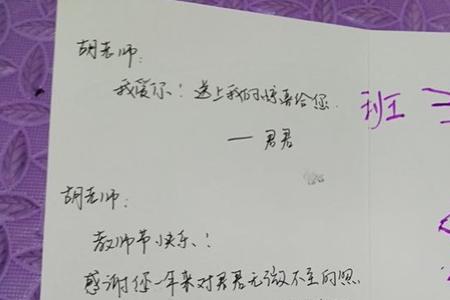 胡老师：
我爱你！送上我的惊喜给您.
——君君
班
胡老师：
教师节快乐！
感谢您一年来对君君无微不至的照